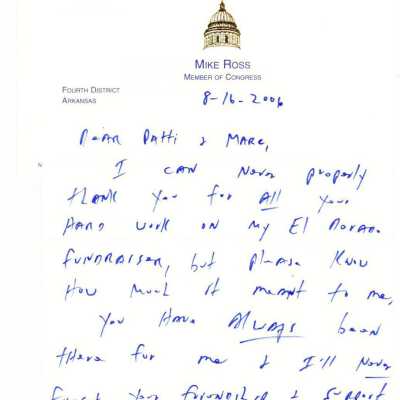 MIKE ROSS
MEMBER OF CONGRESS
FOURTH DISTRICT
ARKANSAS
8-16-2006
DEAR PATTI & MARC,
I CAN Never properly
thank you for ALL your
HARD WORK ON my El DORADO
FUNDRAISER, but please Know
How much it meant to me.
You Have ALWAYS been
there for me & I'll Never
forget your friendship & support